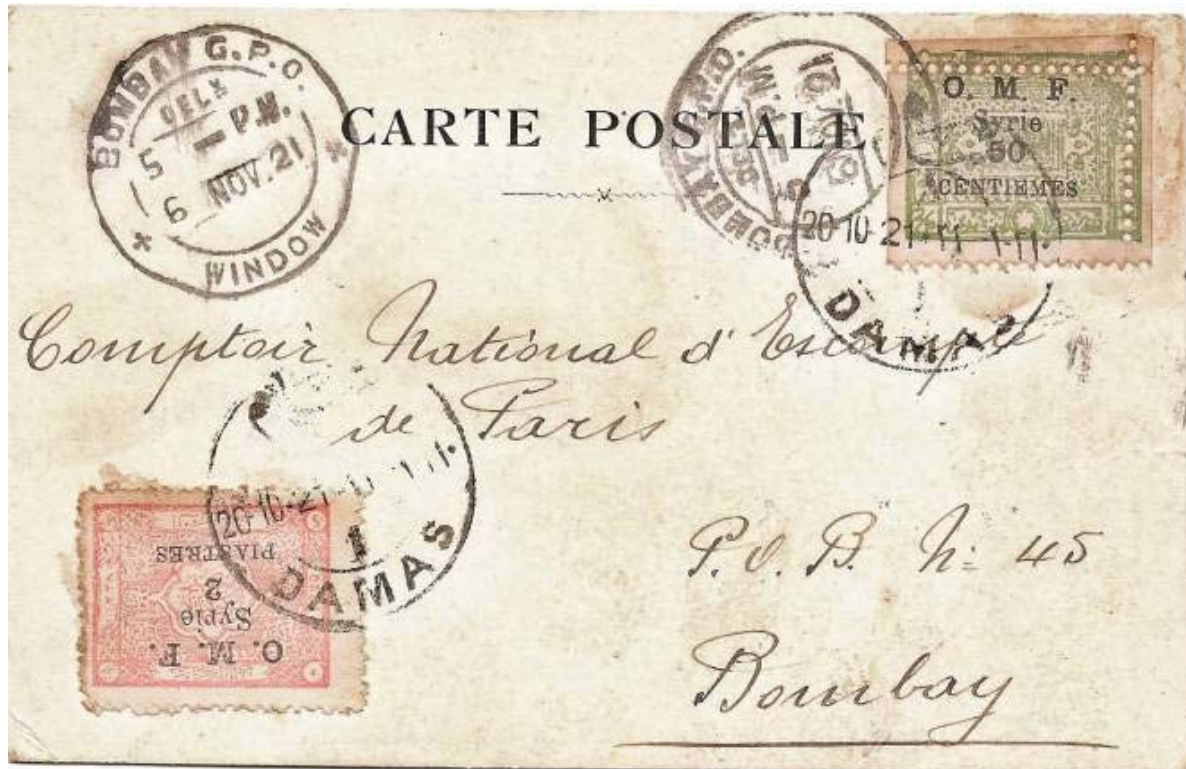 BOMBAY G.P.O.
DELY
5 - P.M.
6 NOV. 21
* WINDOW *
CARTE POSTALE
BOMBAY
O. M. F.
Syrie
50
CENTIEMES
20-10-21
DAMAS
Comptoir National d'Escompte
de Paris
20-10-21
1
DAMAS
O. M. F.
Syrie
2
PIASTRES
P.O.B. No: 45
Bombay